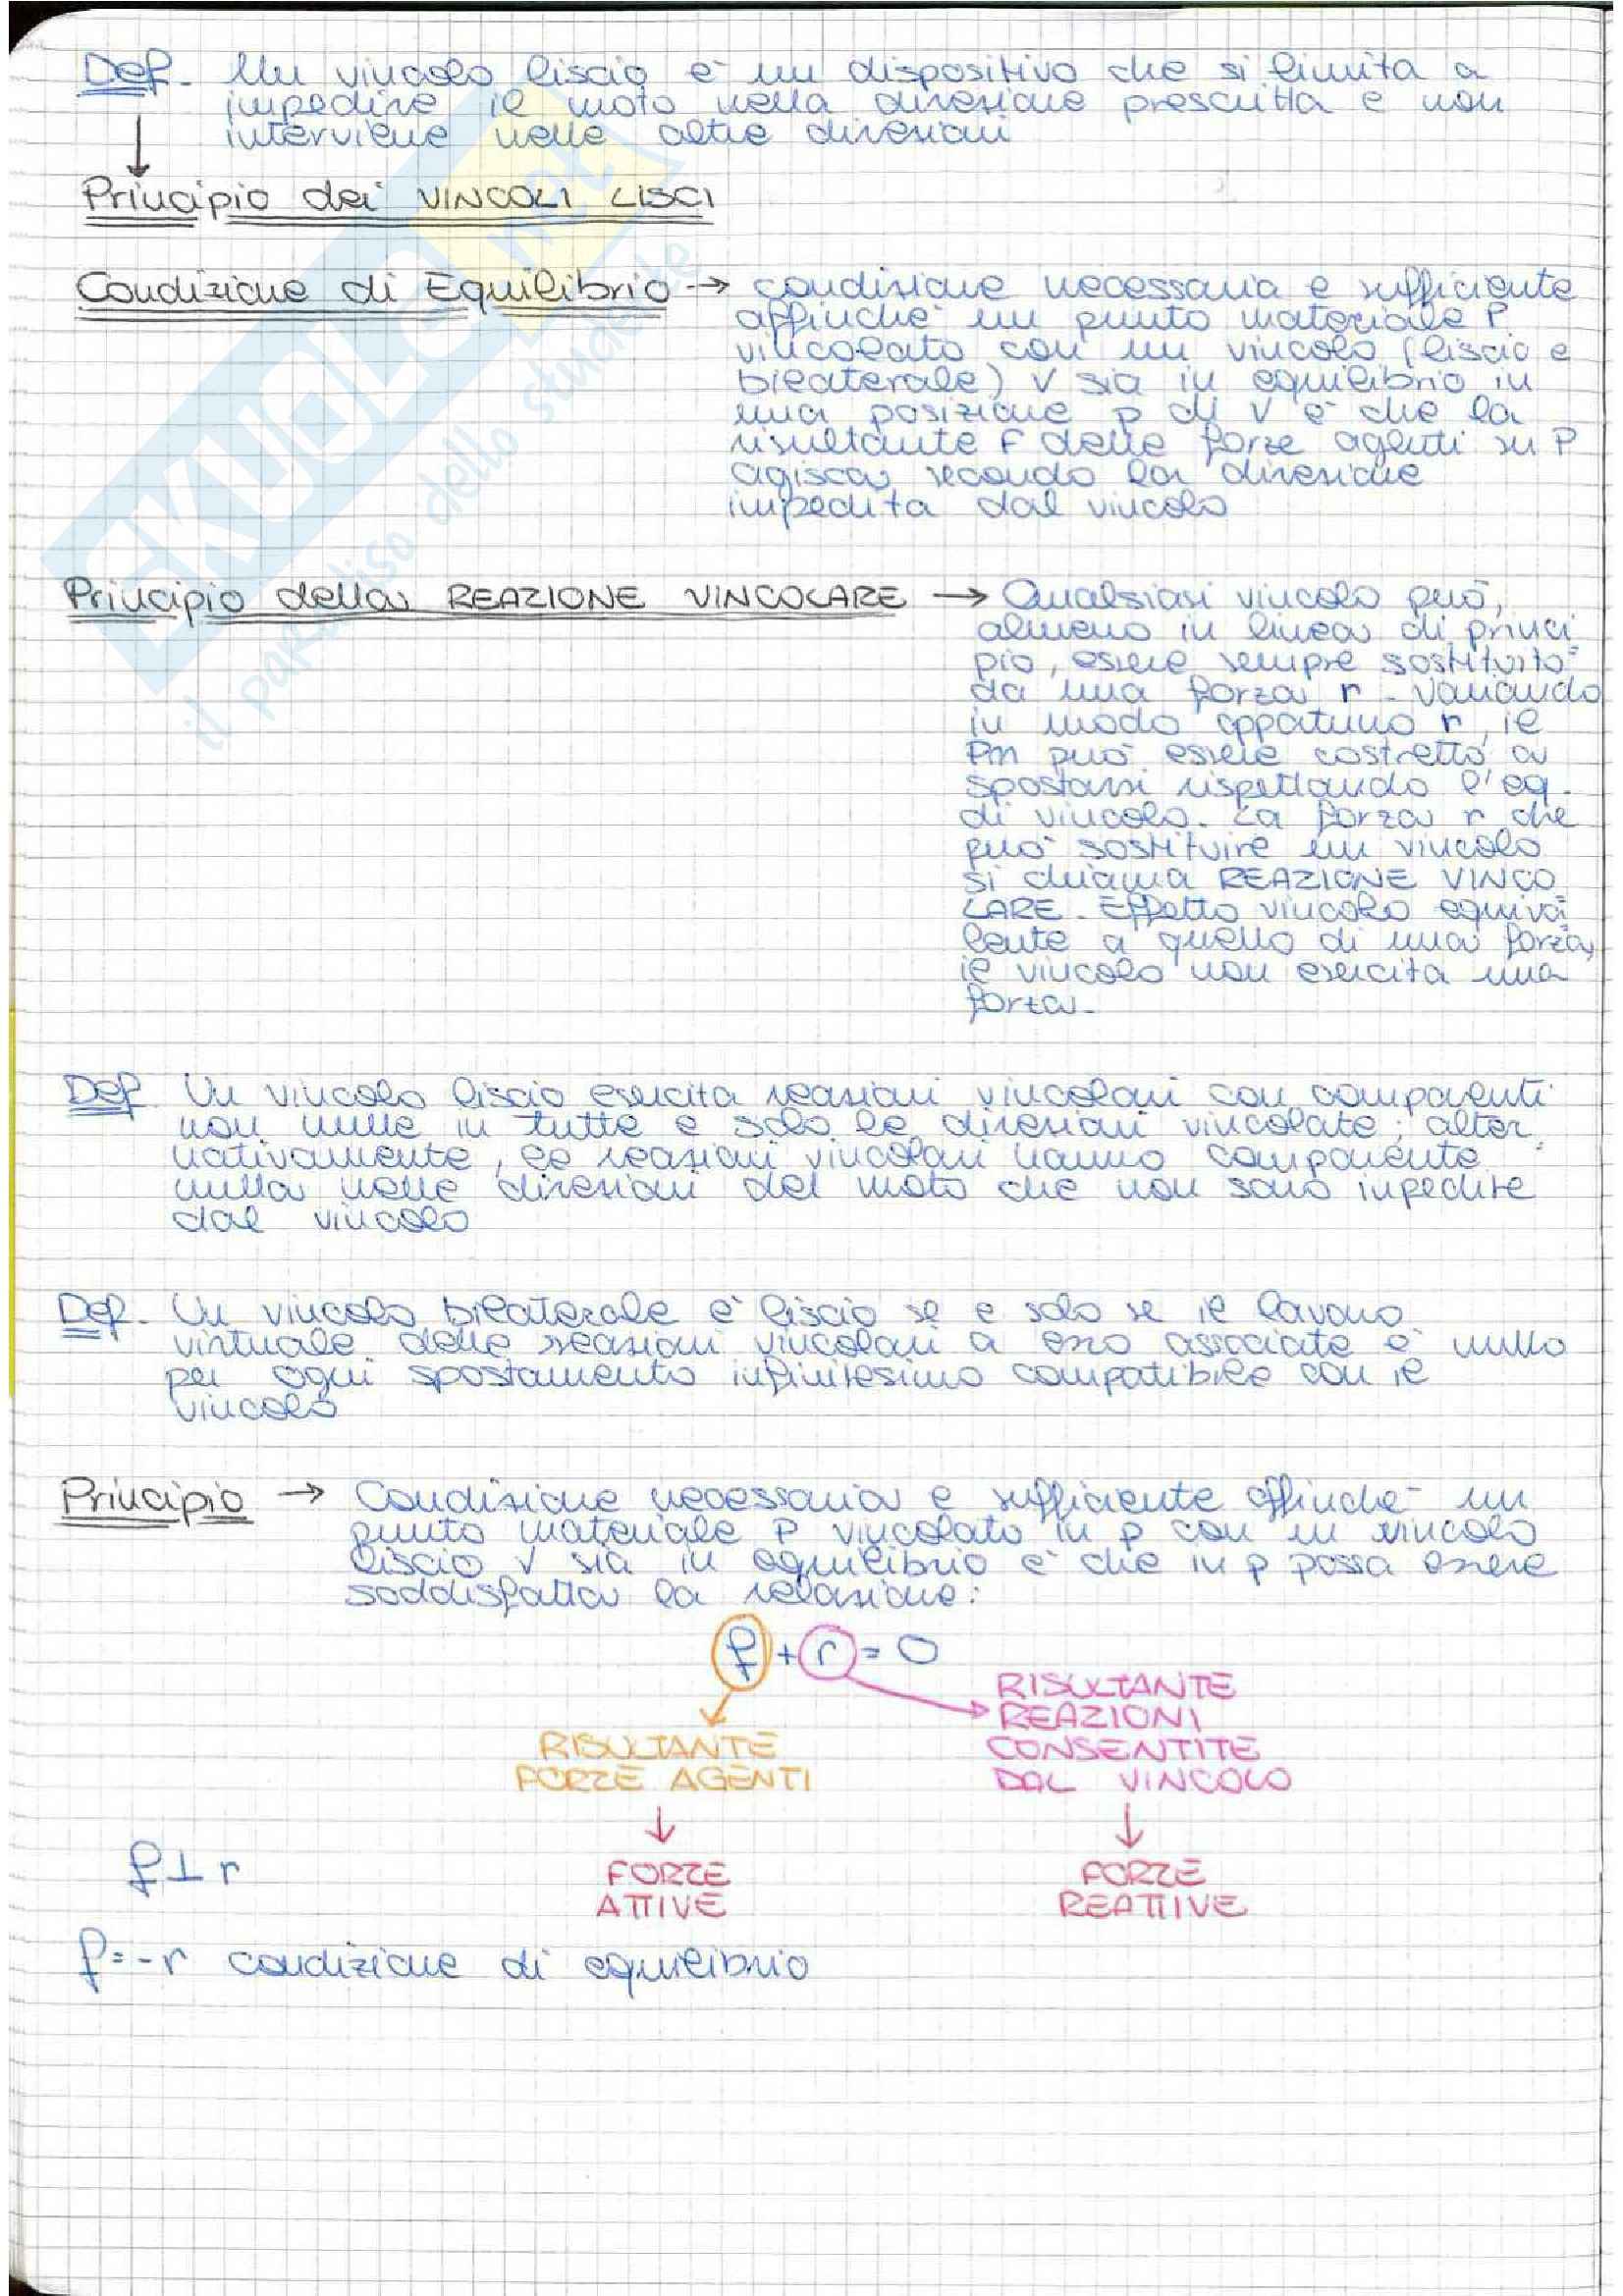 Def. Un vincolo liscio è un dispositivo che si limita a
impedire il moto nella direzione prescritta e non
interviene nelle altre direzioni
Principio dei VINCOLI LISCI
Condizione di Equilibrio → condizione necessaria e sufficiente
affinché un punto materiale P
vincolato con un vincolo (liscio e
bilaterale) V sia in equilibrio in
una posizione p di V è che la
risultante F delle forze agenti su P
agisca secondo la direzione
impedita dal vincolo
Principio della REAZIONE VINCOLARE → Qualsiasi vincolo può,
almeno in linea di princi
pio, essere sempre sostituito
da una forza r. Variando
in modo opportuno r, il
Pm può essere costretto a
spostarsi rispettando l'eq.
di vincolo. La forza r che
può sostituire un vincolo
si chiama REAZIONE VINCO
LARE. Effetto vincolo equiva
lente a quello di una forza,
il vincolo non esercita una
forza.
Def Un vincolo liscio esercita reazioni vincolari con componenti
non nulle in tutte e solo le direzioni vincolate; alter
nativamente, le reazioni vincolari hanno componente
nulla nelle direzioni del moto che non sono inpedite
dal vincolo
Def. Un vincolo bilaterale è liscio se e solo se il lavoro
virtuale delle reazioni vincolari a esso associate è nullo
per ogni spostamento infinitesimo compatibile con il
vincolo
Principio → Condizione necessaria e sufficiente affinché un
punto materiale P vincolato in p con un vincolo
liscio V sia in equilibrio è che in p possa essere
soddisfatta la relazione:
f + r = 0
RISULTANTE
REAZIONI
CONSENTITE
DAL VINCOLO
RISULTANTE
FORZE AGENTI
f ⊥ r
FORZE
ATTIVE
FORZE
REATTIVE
f = -r condizione di equilibrio
SKUOLA.net
il paradiso dello studente